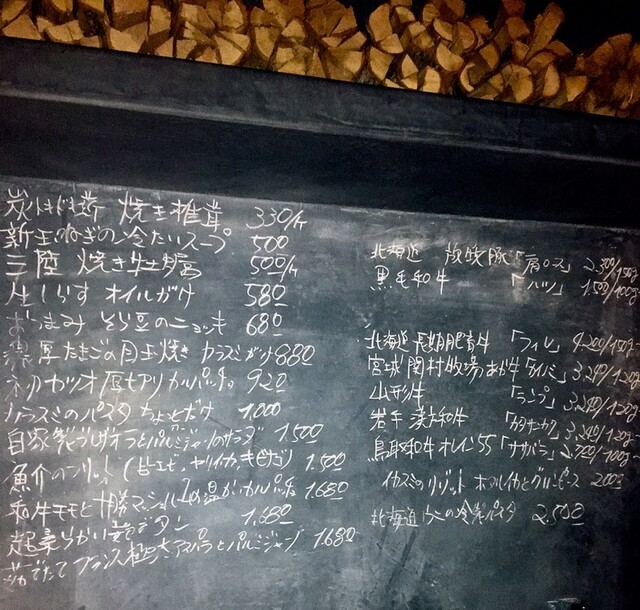 焼き椎茸 330/ケ
新玉ねぎの冷たいスープ 500
三陸 焼き牡蠣 500/ケ
生しらす オイルがけ 580
おつまみ そら豆のニョッキ 680
濃厚たまごの目玉焼き カラスミがけ 880
初ガツオ 厚切りカルパッチョ 920
カラスミのパスタ ちょとだけ 1,000
自家製ブレザオラとパルミジャーノのサラダ 1,500
魚介のフリット 1,500
和牛モモと マッシュルームの温かいカルパッチョ 1,680
1,680
茹でたて フランス極太アスパラとパルミジャーノ 1,680
北海道 放牧豚「肩ロース」 2,300/150g
黒毛和牛 「ハツ」 1,500/100g
北海道 長期肥育牛 「フィレ」 4,200/150g
宮城 関村牧場 あか牛
山形牛 「ランプ」
岩手 和牛 「カタサンカク」
鳥取和牛 オレイン55 「ササバラ」
イカスミのリゾット ホタルイカとグリンピース
北海道 ウニの冷製パスタ 2,500